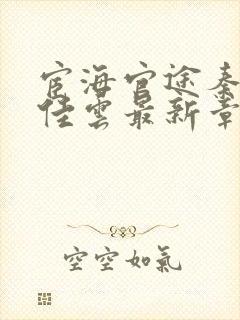 宦海官途秦
佳雲最新章
空空如氣